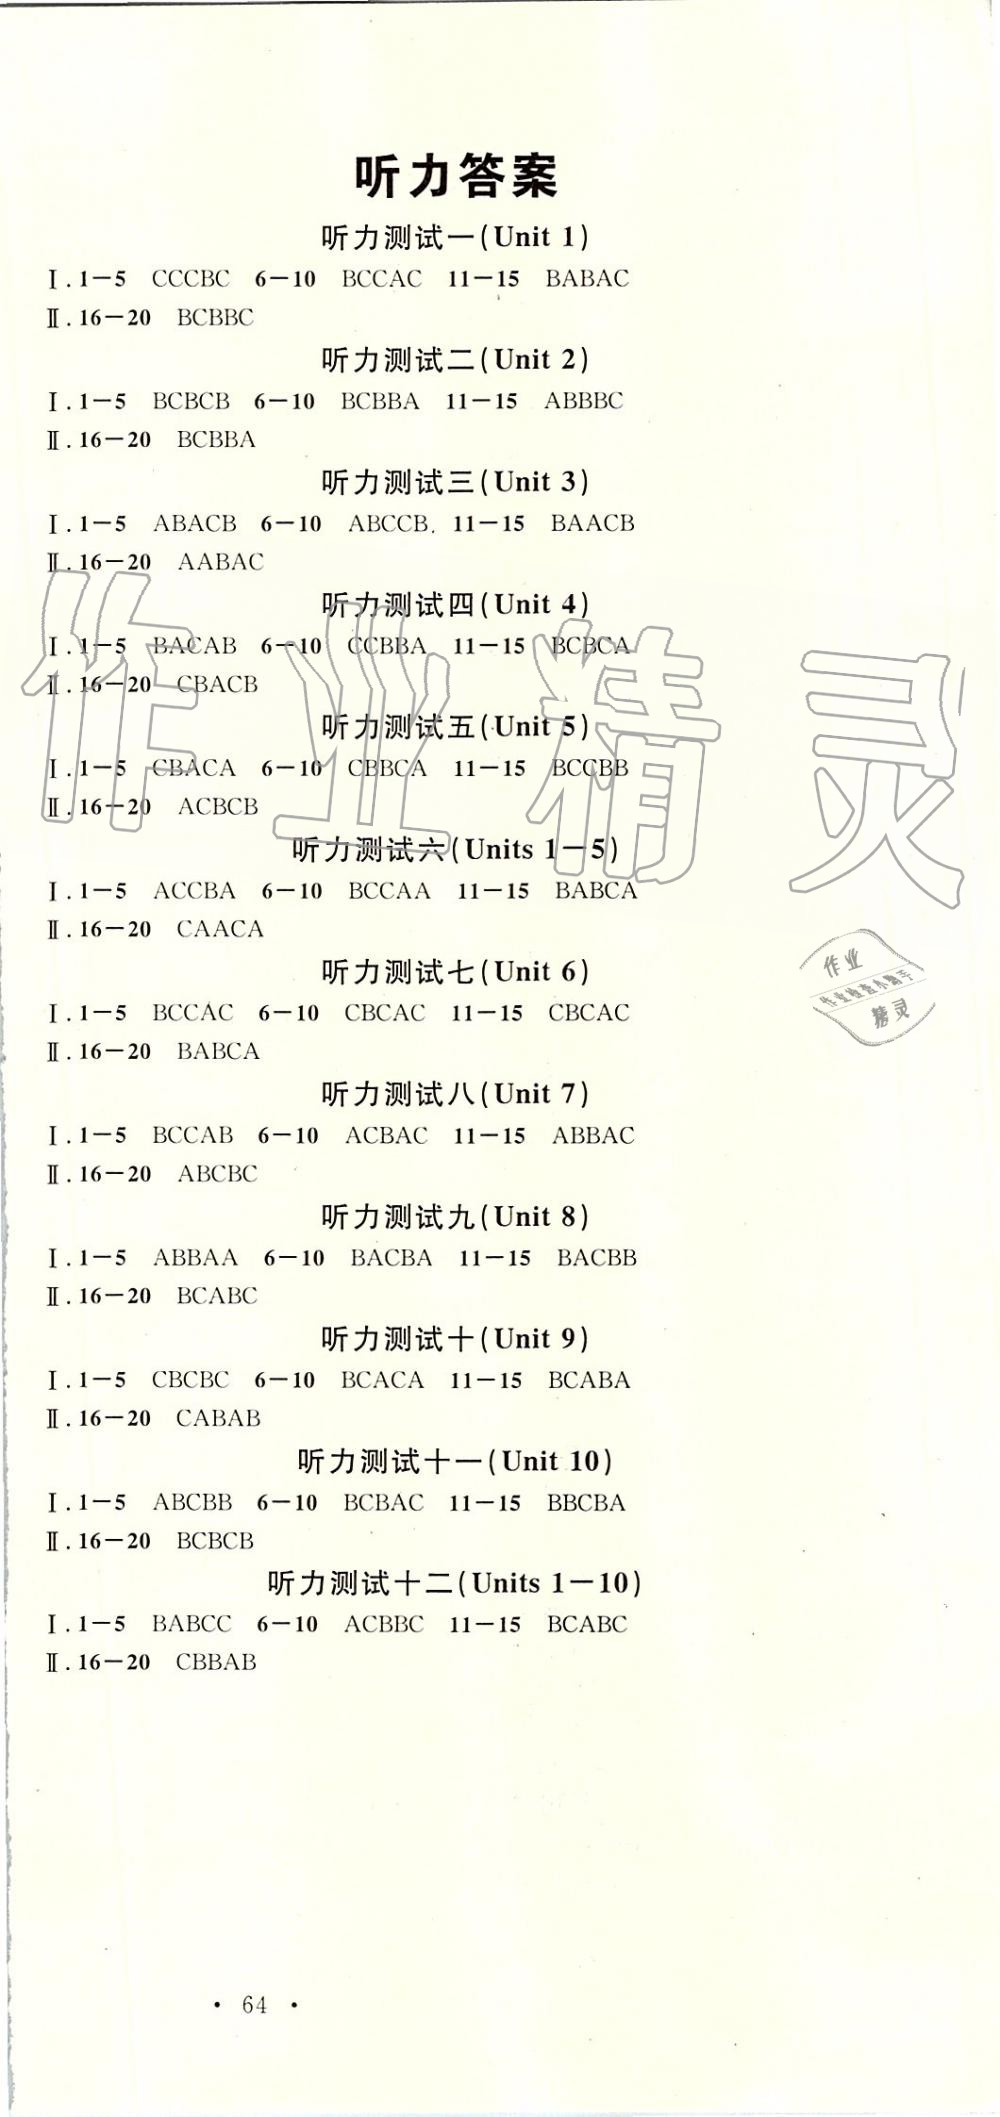 听力答案
听力测试一(Unit 1)
Ⅰ.1—5 CCCBC 6—10 BCCAC 11—15 BABAC
Ⅱ.16—20 BCBBC
听力测试二(Unit 2)
Ⅰ.1—5 BCBCB 6—10 BCBBA 11—15 ABBBC
Ⅱ.16—20 BCBBA
听力测试三(Unit 3)
Ⅰ.1—5 ABACB 6—10 ABCCB. 11—15 BAACB
Ⅱ.16—20 AABAC
听力测试四(Unit 4)
Ⅰ.1—5 BACAB 6—10 CCBBA 11—15 BCBCA
Ⅱ.16—20 CBACB
听力测试五(Unit 5)
Ⅰ.1—5 CBACA 6—10 CBBCA 11—15 BCCBB
Ⅱ.16—20 ACBCB
听力测试六(Units 1—5)
Ⅰ.1—5 ACCBA 6—10 BCCAA 11—15 BABCA
Ⅱ.16—20 CAACA
听力测试七(Unit 6)
Ⅰ.1—5 BCCAC 6—10 CBCAC 11—15 CBCAC
Ⅱ.16—20 BABCA
听力测试八(Unit 7)
Ⅰ.1—5 BCCAB 6—10 ACBAC 11—15 ABBAC
Ⅱ.16—20 ABCBC
听力测试九(Unit 8)
Ⅰ.1—5 ABBAA 6—10 BACBA 11—15 BACBB
Ⅱ.16—20 BCABC
听力测试十(Unit 9)
Ⅰ.1—5 CBCBC 6—10 BCACA 11—15 BCABA
Ⅱ.16—20 CABAB
听力测试十一(Unit 10)
Ⅰ.1—5 ABCBB 6—10 BCBAC 11—15 BBCBA
Ⅱ.16—20 BCBCB
听力测试十二(Units 1—10)
Ⅰ.1—5 BABCC 6—10 ACBBC 11—15 BCABC
Ⅱ.16—20 CBBAB
· 64 ·
作业精灵
作业
作业检查小助手
精灵